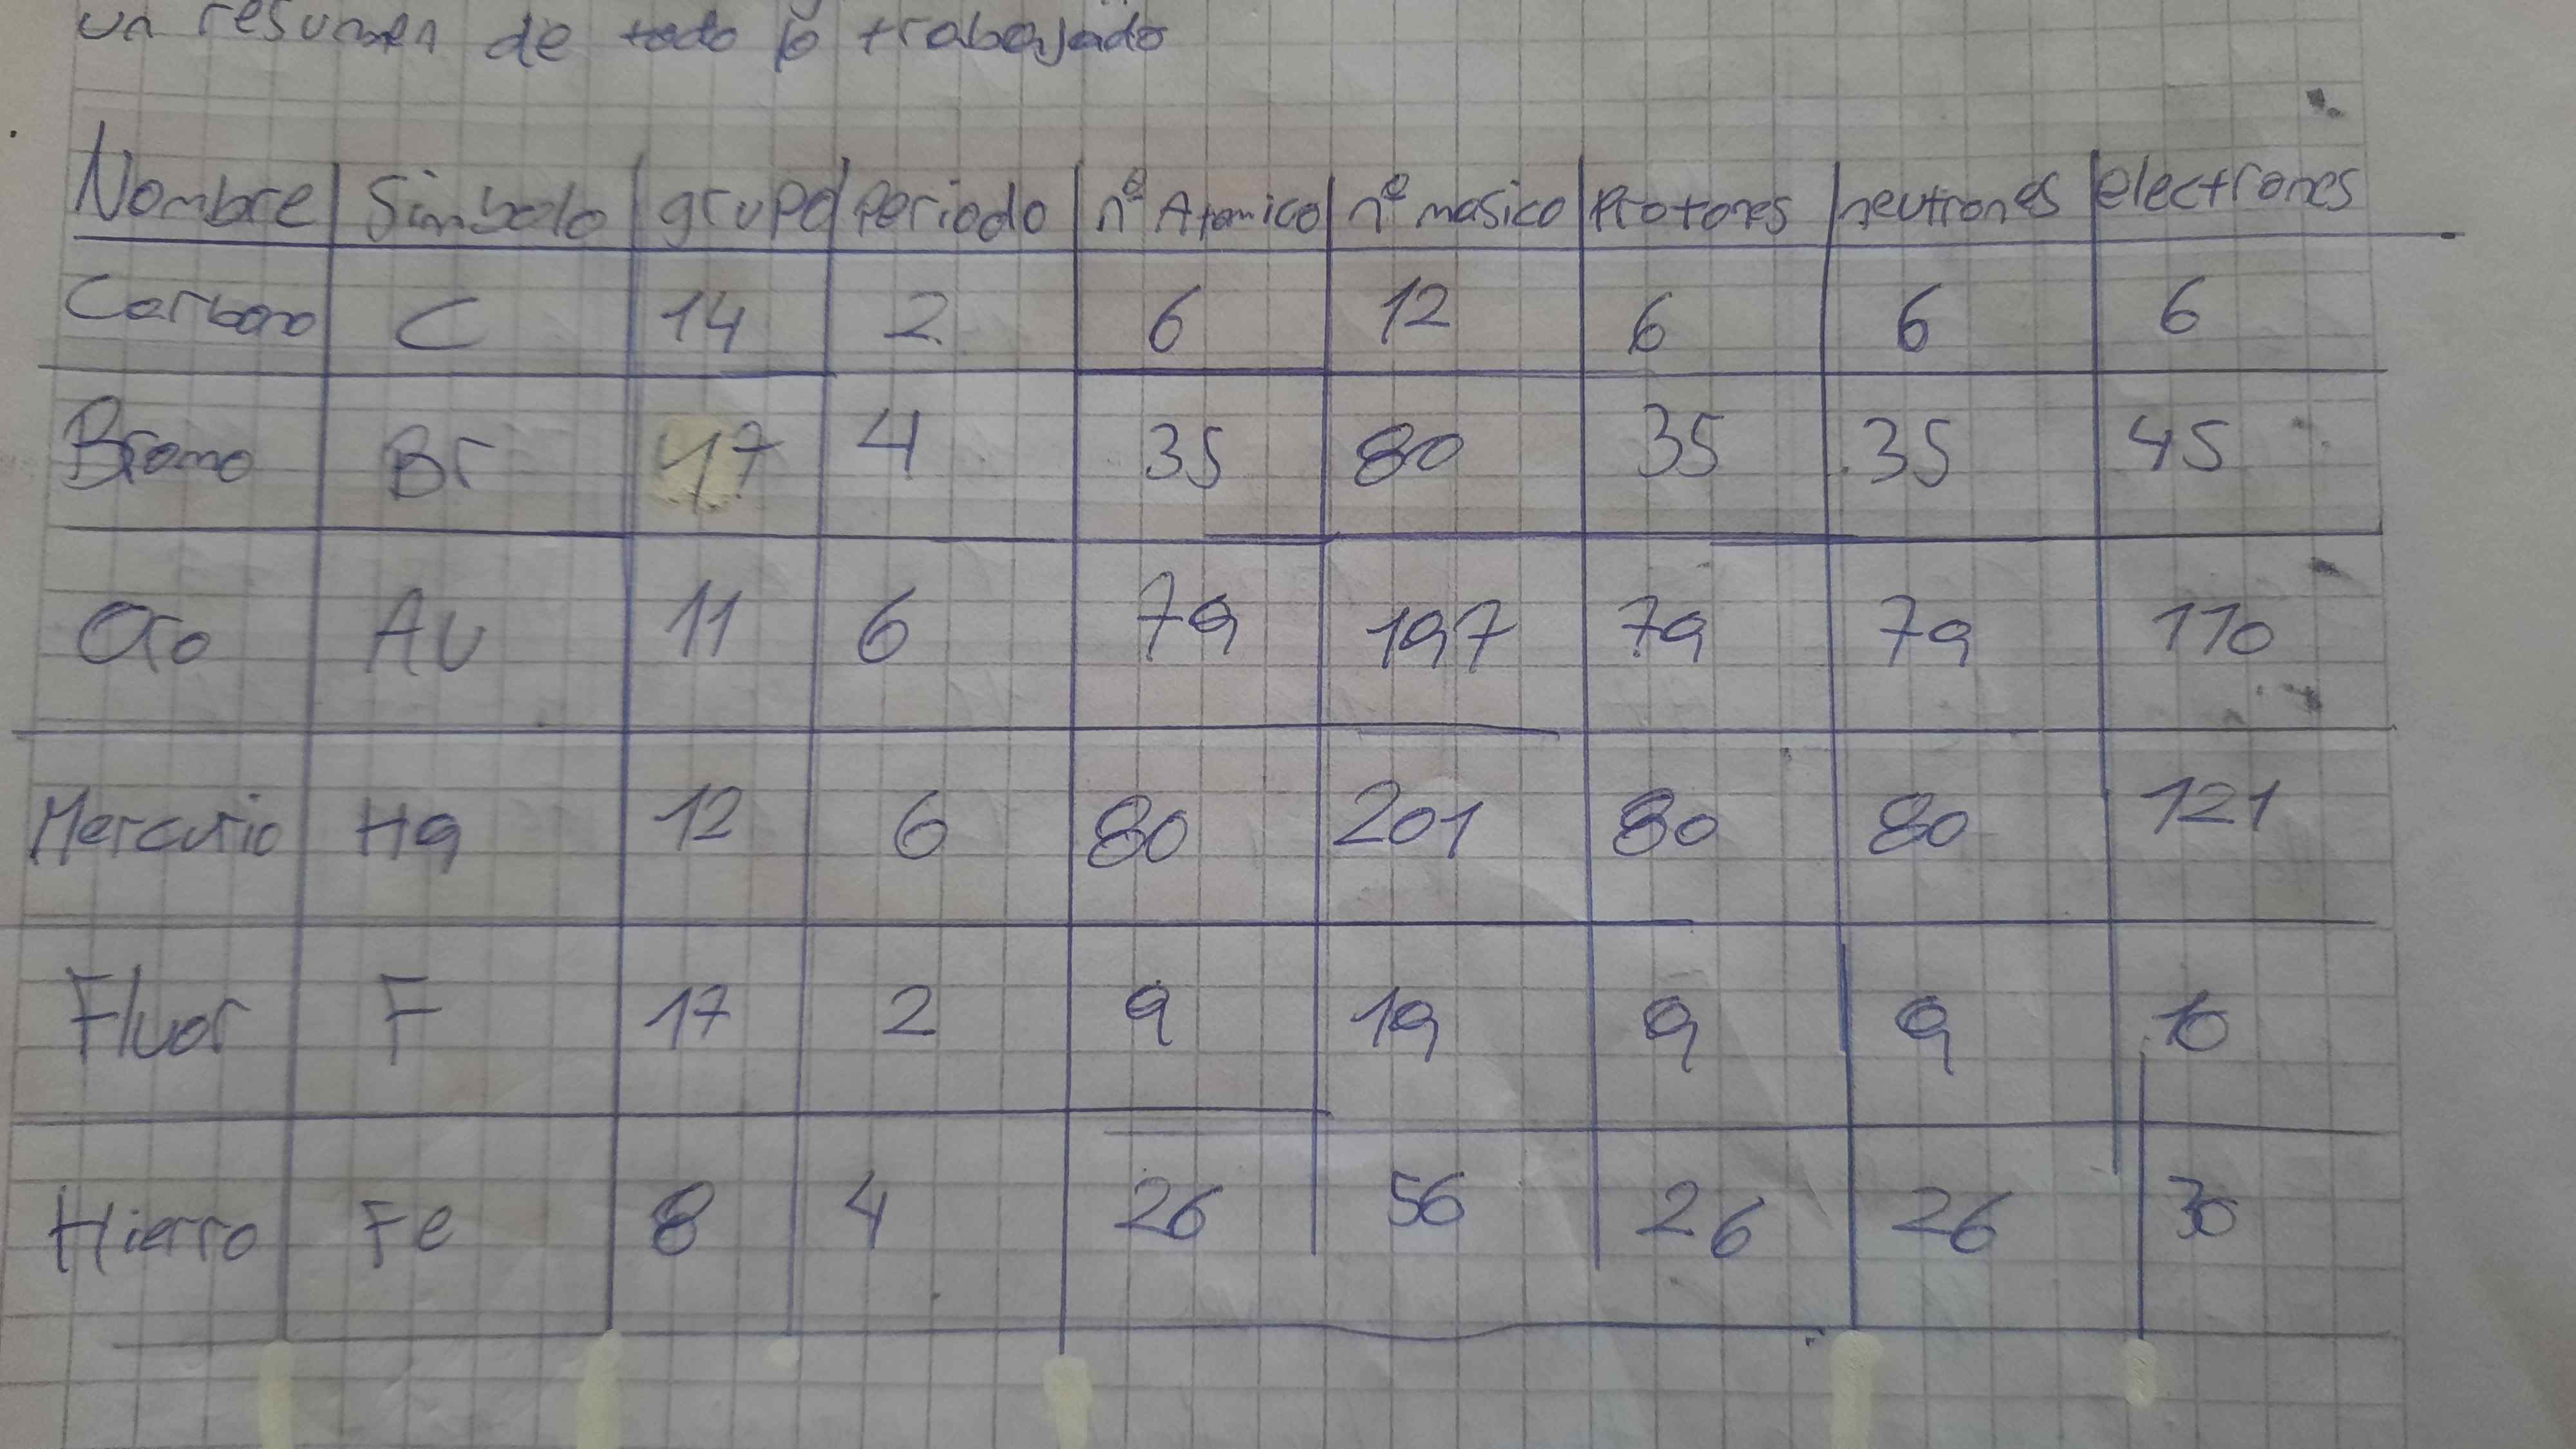 un resumen de todo lo trabajado
Nombre Simbolo grupo Periodo nº Atomico nº masico Protones neutrones electrones
Carbono C 14 2 6 12 6 6 6
Bromo Br 17 4 35 80 35 35 45
Oro Au 11 6 79 197 79 79 110
Mercurio Hg 12 6 80 201 80 80 121
Fluor F 17 2 9 19 9 9 10
Hierro Fe 8 4 26 56 26 26 30